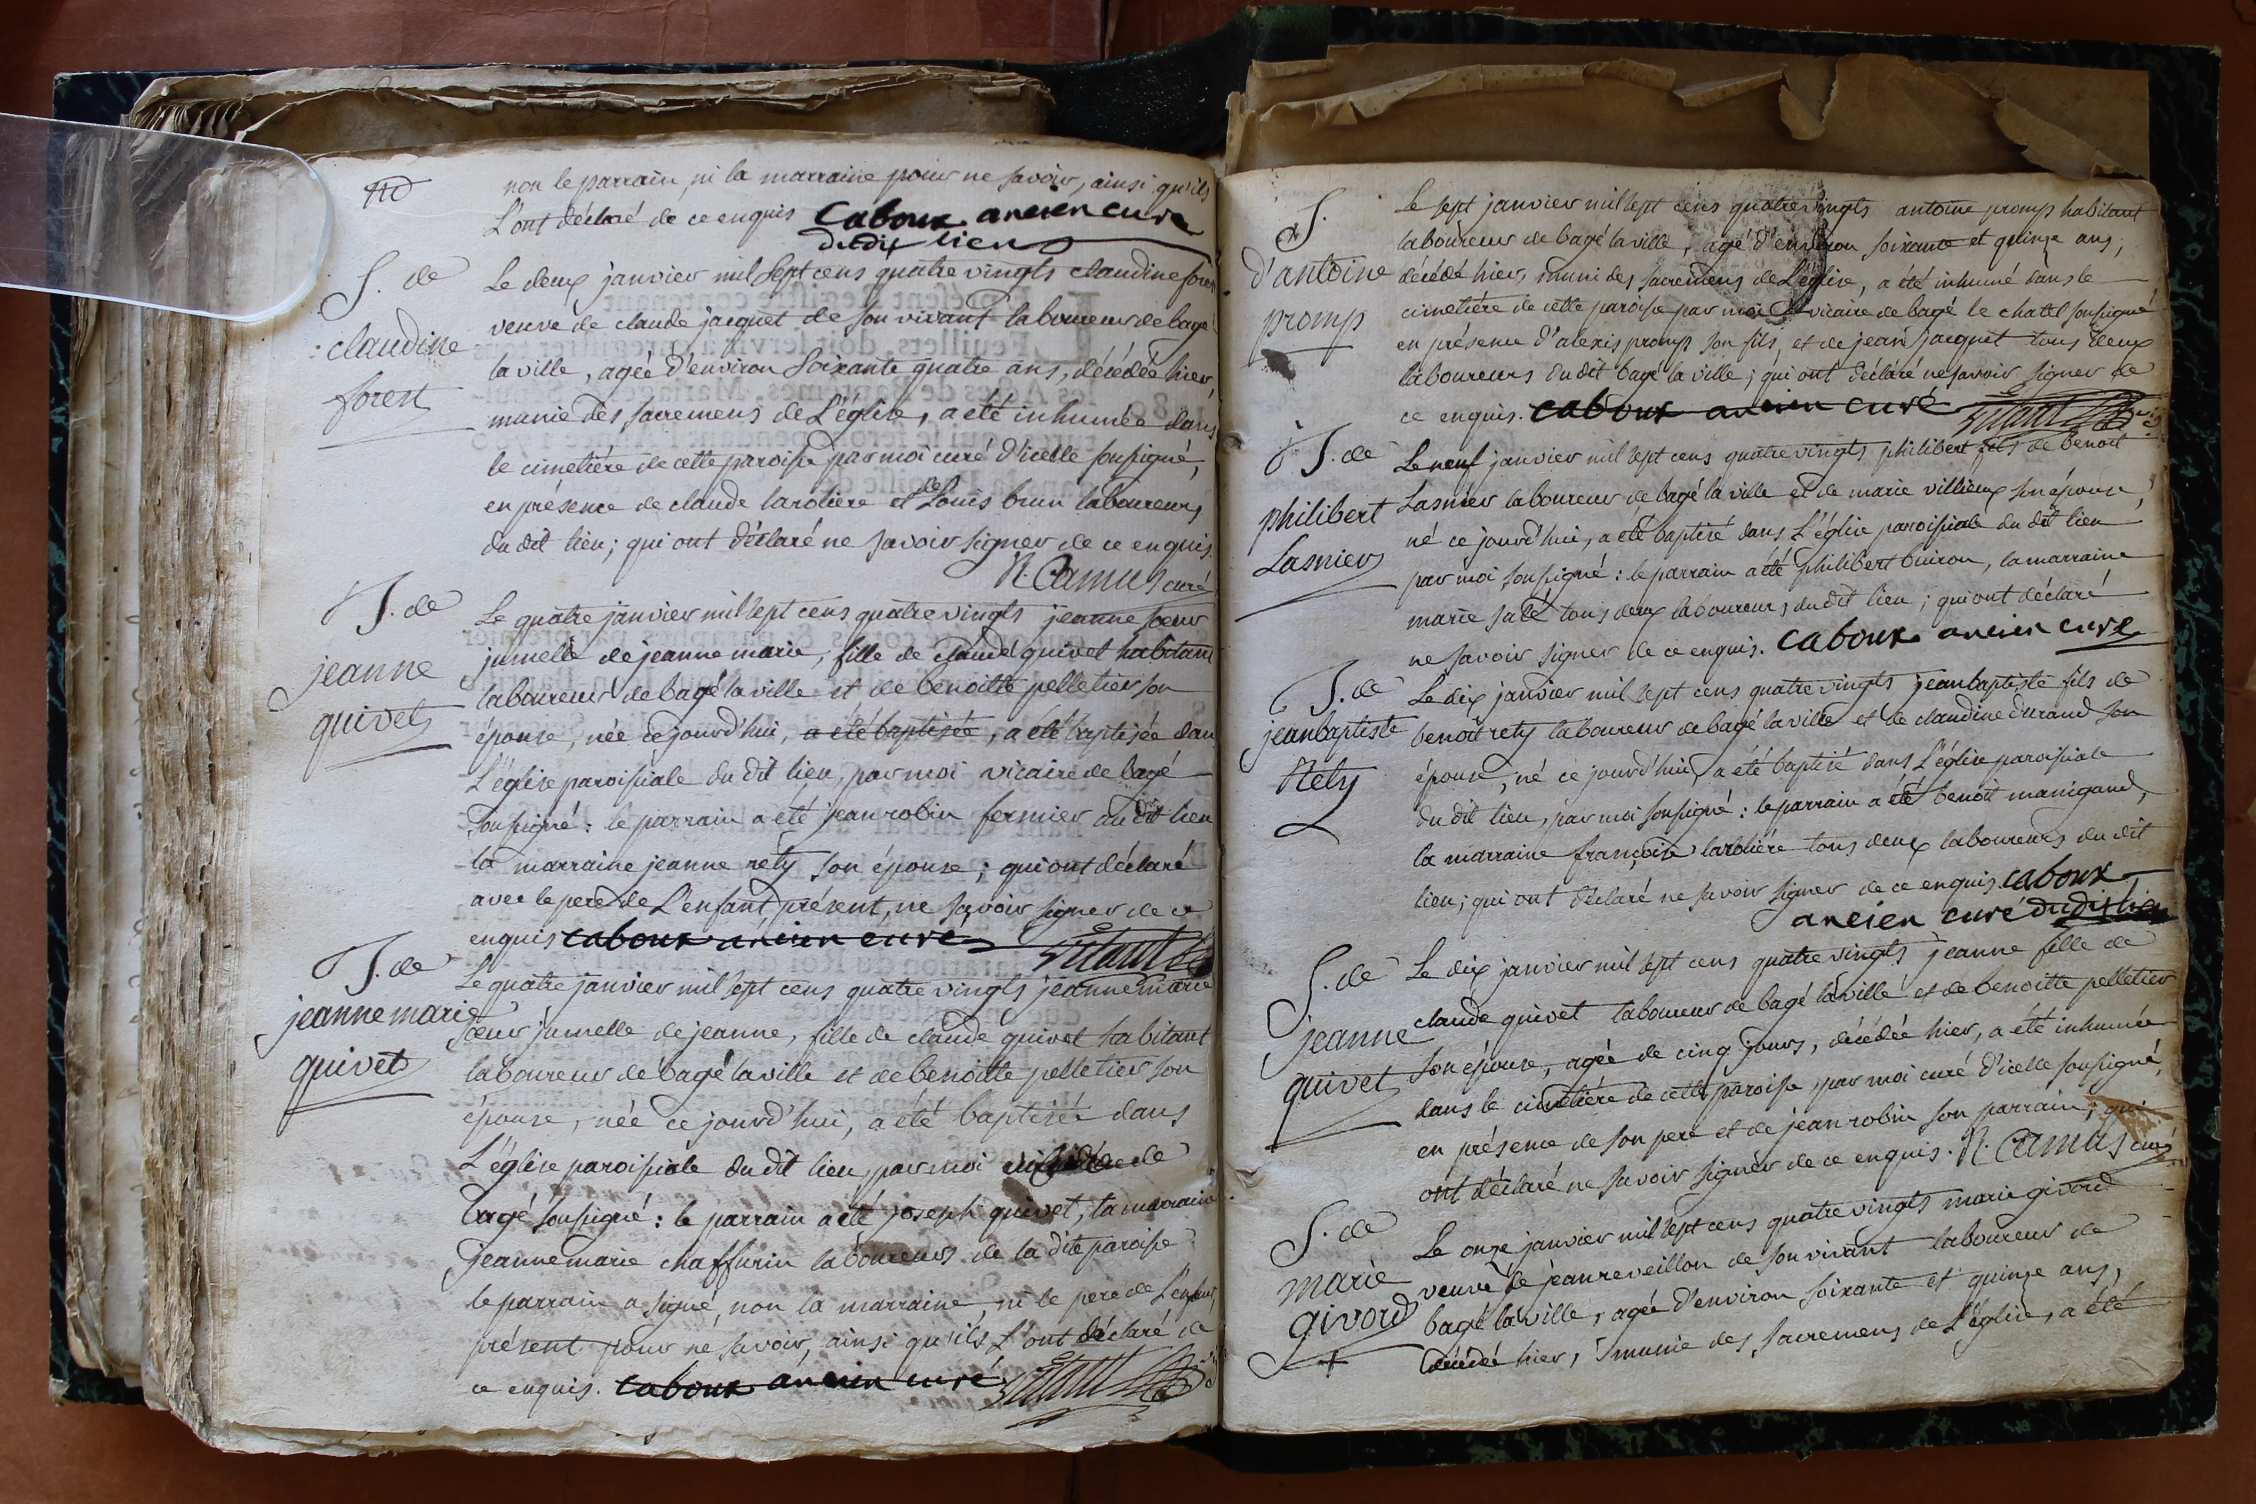 non le parrain, ni la marraine pour ne savoir, ainsi qu'ils
L'ont déclaré de ce enquis caboux ancien curé
du dit lieu
S. de
claudine
forest
Le deux janvier mil sept cens quatre vingts claudine forest
veuve de claude jacquet de son vivant laboureur de bagé
la ville, agée d'environ soixante quatre ans, décédée hier,
munie des sacremens de L'église, a été inhumée dans
le cimetière de cette paroisse par moi curé d'icelle soussigné,
en présence de claude larolière et de Louis brun laboureurs
du dit lieu; qui ont déclaré ne savoir signer de ce enquis.
N. Camus curé
J. de
jeanne
quivet
Le quatre janvier mil sept cens quatre vingts jeanne soeur
jumelle de jeanne marie, fille de claude quivet habitant
laboureur de bagé la ville et de benoitte pelletier son
épouse, née ce jourd'hui, a été baptisée, a été baptisée dans
L'église paroissiale du dit lieu, par moi vicaire de bagé
soussigné: le parrain a été jean robin fermier au dit lieu
la marraine jeanne rety son épouse; qui ont déclaré
avec le pere de L'enfant présent, ne savoir signer de ce
enquis caboux ancien curé
J. de
jeanne marie
quivet
Le quatre janvier mil sept cens quatre vingts jeanne marie
soeur jumelle de jeanne, fille de claude quivet habitant
laboureur de bagé la ville et de benoitte pelletier son
épouse, née ce jourd'hui, a été baptisée dans
L'église paroissiale du dit lieu, par moi de
bagé soussigné: le parrain a été joseph quivet, la marraine
jeanne marie chaffurin laboureurs de la dite paroisse
le parrain a signé, non la marraine, ni le pere de L'enfant
présent pour ne savoir, ainsi qu'ils L'ont déclaré de
ce enquis. caboux ancien curé
S.
d'antoine
promp
Le sept janvier mil sept cens quatre vingts antoine promp habitant
laboureur de bagé la ville, agé d'environ soixante et quinze ans,
décédé hier, muni des sacremens de L'église, a été inhumé dans le
cimetière de cette paroisse par moi vicaire de bagé le chatel soussigné
en présence d'alexis promp son fils, et de jean jacquet tous deux
laboureurs du dit bagé la ville; qui ont déclaré ne savoir signer de
ce enquis. caboux ancien curé
J. de
philibert
Lasnier
Le neuf janvier mil sept cens quatre vingts philibert fils de benoit
Lasnier laboureur de bagé la ville et de marie villieux son épouse,
né ce jourd'hui, a été baptisé dans L'église paroissiale du dit lieu
par moi soussigné: le parrain a été philibert buiron, la marraine
marie salé tous deux laboureurs du dit lieu; qui ont déclaré
ne savoir signer de ce enquis. caboux ancien curé
J. de
jean baptiste
Rety
Le dix janvier mil sept cens quatre vingts jean baptiste fils de
benoit rety laboureur de bagé la ville et de claudine durand son
épouse, né ce jourd'hui a été baptisé dans L'église paroissiale
du dit lieu, par moi soussigné: le parrain a été benoit manigand,
la marraine françoise larolière tous deux laboureurs du dit
lieu; qui ont déclaré ne savoir signer de ce enquis caboux
ancien curé du dit lieu
S. de
jeanne
quivet
Le dix janvier mil sept cens quatre vingts jeanne fille de
claude quivet laboureur de bagé la ville et de benoitte pelletier
son épouse, agée de cinq jours, décédée hier, a été inhumée
dans le cimetière de cette paroisse, par moi curé d'icelle soussigné,
en présence de son pere et de jean robin son parrain; qui
ont déclaré ne savoir signer de ce enquis. N. Camus curé
S. de
marie
givord
Le onze janvier mil sept cens quatre vingts marie givord
veuve de jean reveillon de son vivant laboureur de
bagé la ville, agée d'environ soixante et quinze ans,
décédée hier, munie des sacremens de L'église, a été